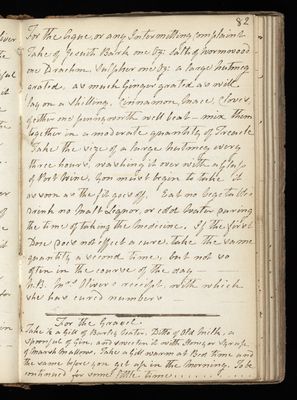 82
For the Ague, or any Intermitting Complaint
Take of Jesuits Bark one Oz: Salts of Wormwood
one Drachm, Sulpher one Oz: a large Nutmeg
grated, as much Ginger grated as will
lay on a Shilling, Cinnamon, Mace, Cloves,
of either one pennyworth well beat - mix them
together in a moderate quantity of Treacle
Take the size of a large Nutmeg every
three hours, washing it over with a glass
of Port Wine, You must begin to take it
as soon as the fit goes off, Eat no Vegetable
drink no Malt Liquor, or cold Water during
the time of taking the Medicine. If the first
Dose does not effect a cure take the same
quantity a second time, but not so
often in the course of the day —
N.B. Mrs Olver's receipt, with which
she has cured numbers —
For the Gravel
Take ½ a Gill of Barley Water, Ditto of Old Milk, a
spoonful of Gin, and sweeten it with Honey or Syrup
of Marsh Mallows. Take a Gill warm at Bed time and
the same before you get up in the Morning. To be
continued for some little time